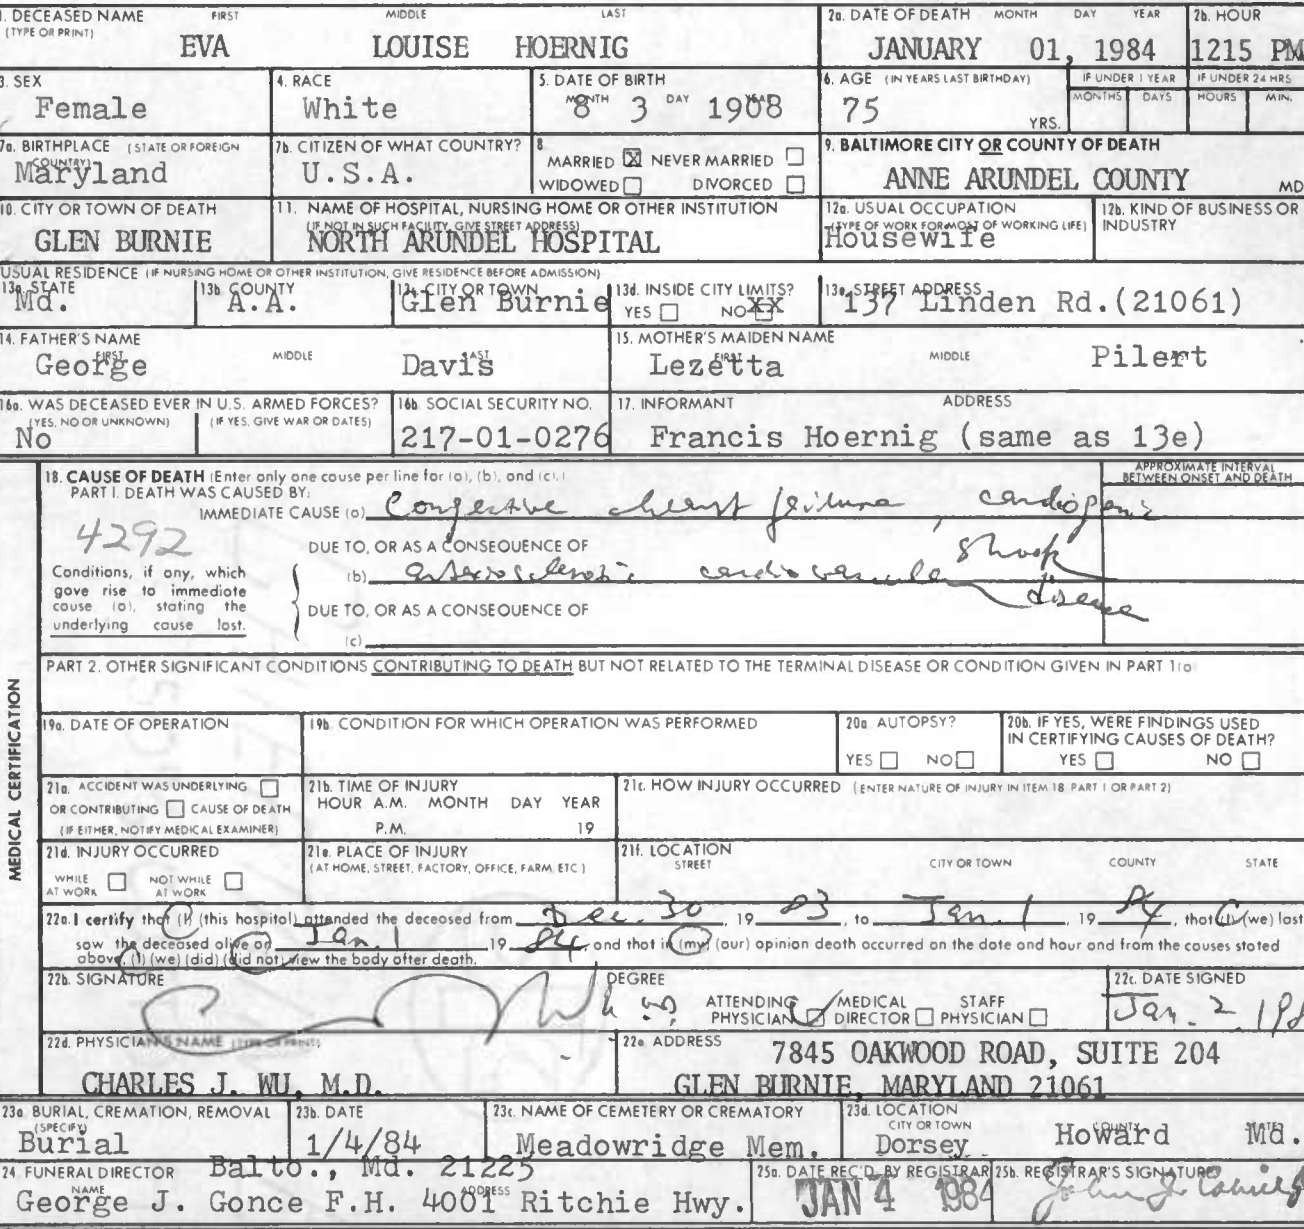 1. DECEASED NAME (TYPE OR PRINT) FIRST MIDDLE LAST
EVA LOUISE HOERNIG
2a. DATE OF DEATH MONTH DAY YEAR
JANUARY 01, 1984
2b. HOUR
1215 PM
3. SEX
Female
4. RACE
White
5. DATE OF BIRTH MONTH DAY YEAR
8 3 1908
6. AGE (IN YEARS LAST BIRTHDAY)
75 YRS.
IF UNDER 1 YEAR
MONTHS DAYS
IF UNDER 24 HRS
HOURS MIN.
7a. BIRTHPLACE (STATE OR FOREIGN COUNTRY)
Maryland
7b. CITIZEN OF WHAT COUNTRY?
U.S.A.
8
MARRIED ☒ NEVER MARRIED ☐
WIDOWED ☐ DIVORCED ☐
9. BALTIMORE CITY OR COUNTY OF DEATH
ANNE ARUNDEL COUNTY MD
10. CITY OR TOWN OF DEATH
GLEN BURNIE
11. NAME OF HOSPITAL, NURSING HOME OR OTHER INSTITUTION
(IF NOT IN SUCH FACILITY, GIVE STREET ADDRESS)
NORTH ARUNDEL HOSPITAL
12a. USUAL OCCUPATION
(TYPE OF WORK FOR MOST OF WORKING LIFE)
Housewife
12b. KIND OF BUSINESS OR INDUSTRY
USUAL RESIDENCE (IF NURSING HOME OR OTHER INSTITUTION, GIVE RESIDENCE BEFORE ADMISSION)
13a. STATE
Md.
13b. COUNTY
A.A.
13c. CITY OR TOWN
Glen Burnie
13d. INSIDE CITY LIMITS?
YES ☐ NO XX
13e. STREET ADDRESS
137 Linden Rd.(21061)
14. FATHER'S NAME
FIRST MIDDLE LAST
George Davis
15. MOTHER'S MAIDEN NAME
FIRST MIDDLE LAST
Lezetta Pilert
16a. WAS DECEASED EVER IN U.S. ARMED FORCES?
(YES, NO OR UNKNOWN) (IF YES, GIVE WAR OR DATES)
No
16b. SOCIAL SECURITY NO.
217-01-0276
17. INFORMANT ADDRESS
Francis Hoernig (same as 13e)
MEDICAL CERTIFICATION
18. CAUSE OF DEATH (Enter only one cause per line for (a), (b), and (c).)
APPROXIMATE INTERVAL BETWEEN ONSET AND DEATH
PART I. DEATH WAS CAUSED BY:
IMMEDIATE CAUSE (a) Congestive heart failure, cardiogenic shock
4292
DUE TO, OR AS A CONSEQUENCE OF
(b) arteriosclerotic cardiovascular disease
Conditions, if any, which gave rise to immediate cause (a), stating the underlying cause last.
DUE TO, OR AS A CONSEQUENCE OF
(c)
PART 2. OTHER SIGNIFICANT CONDITIONS CONTRIBUTING TO DEATH BUT NOT RELATED TO THE TERMINAL DISEASE OR CONDITION GIVEN IN PART 1(a)
19a. DATE OF OPERATION
19b. CONDITION FOR WHICH OPERATION WAS PERFORMED
20a. AUTOPSY?
YES ☐ NO ☐
20b. IF YES, WERE FINDINGS USED IN CERTIFYING CAUSES OF DEATH?
YES ☐ NO ☐
21a. ACCIDENT WAS UNDERLYING ☐
OR CONTRIBUTING ☐ CAUSE OF DEATH
(IF EITHER, NOTIFY MEDICAL EXAMINER)
21b. TIME OF INJURY
HOUR A.M. MONTH DAY YEAR
P.M. 19
21c. HOW INJURY OCCURRED (ENTER NATURE OF INJURY IN ITEM 18 PART 1 OR PART 2)
21d. INJURY OCCURRED
WHILE AT WORK ☐ NOT WHILE AT WORK ☐
21e. PLACE OF INJURY
(AT HOME, STREET, FACTORY, OFFICE, FARM, ETC.)
21f. LOCATION
STREET CITY OR TOWN COUNTY STATE
22a. I certify that (I) (this hospital) attended the deceased from Dec. 30 1983, to Jan. 1 1984, that (I) (we) last
saw the deceased alive on Jan. 1 1984, and that in (my) (our) opinion death occurred on the date and hour and from the causes stated
above, (I) (we) (did) (did not) view the body after death.
22b. SIGNATURE
DEGREE
M.D.
ATTENDING PHYSICIAN ☑ MEDICAL DIRECTOR ☐ STAFF PHYSICIAN ☐
22c. DATE SIGNED
Jan. 2, 198
22d. PHYSICIAN'S NAME (TYPE OR PRINT)
CHARLES J. WU, M.D.
22e. ADDRESS
7845 OAKWOOD ROAD, SUITE 204
GLEN BURNIE, MARYLAND 21061
23a. BURIAL, CREMATION, REMOVAL
(SPECIFY)
Burial
23b. DATE
1/4/84
23c. NAME OF CEMETERY OR CREMATORY
Meadowridge Mem.
23d. LOCATION
CITY OR TOWN COUNTY STATE
Dorsey Howard Md.
24. FUNERAL DIRECTOR
NAME ADDRESS
Balto., Md. 21225
George J. Gonce F.H. 4001 Ritchie Hwy.
25a. DATE REC'D. BY REGISTRAR
JAN 4 1984
25b. REGISTRAR'S SIGNATURE
John J.